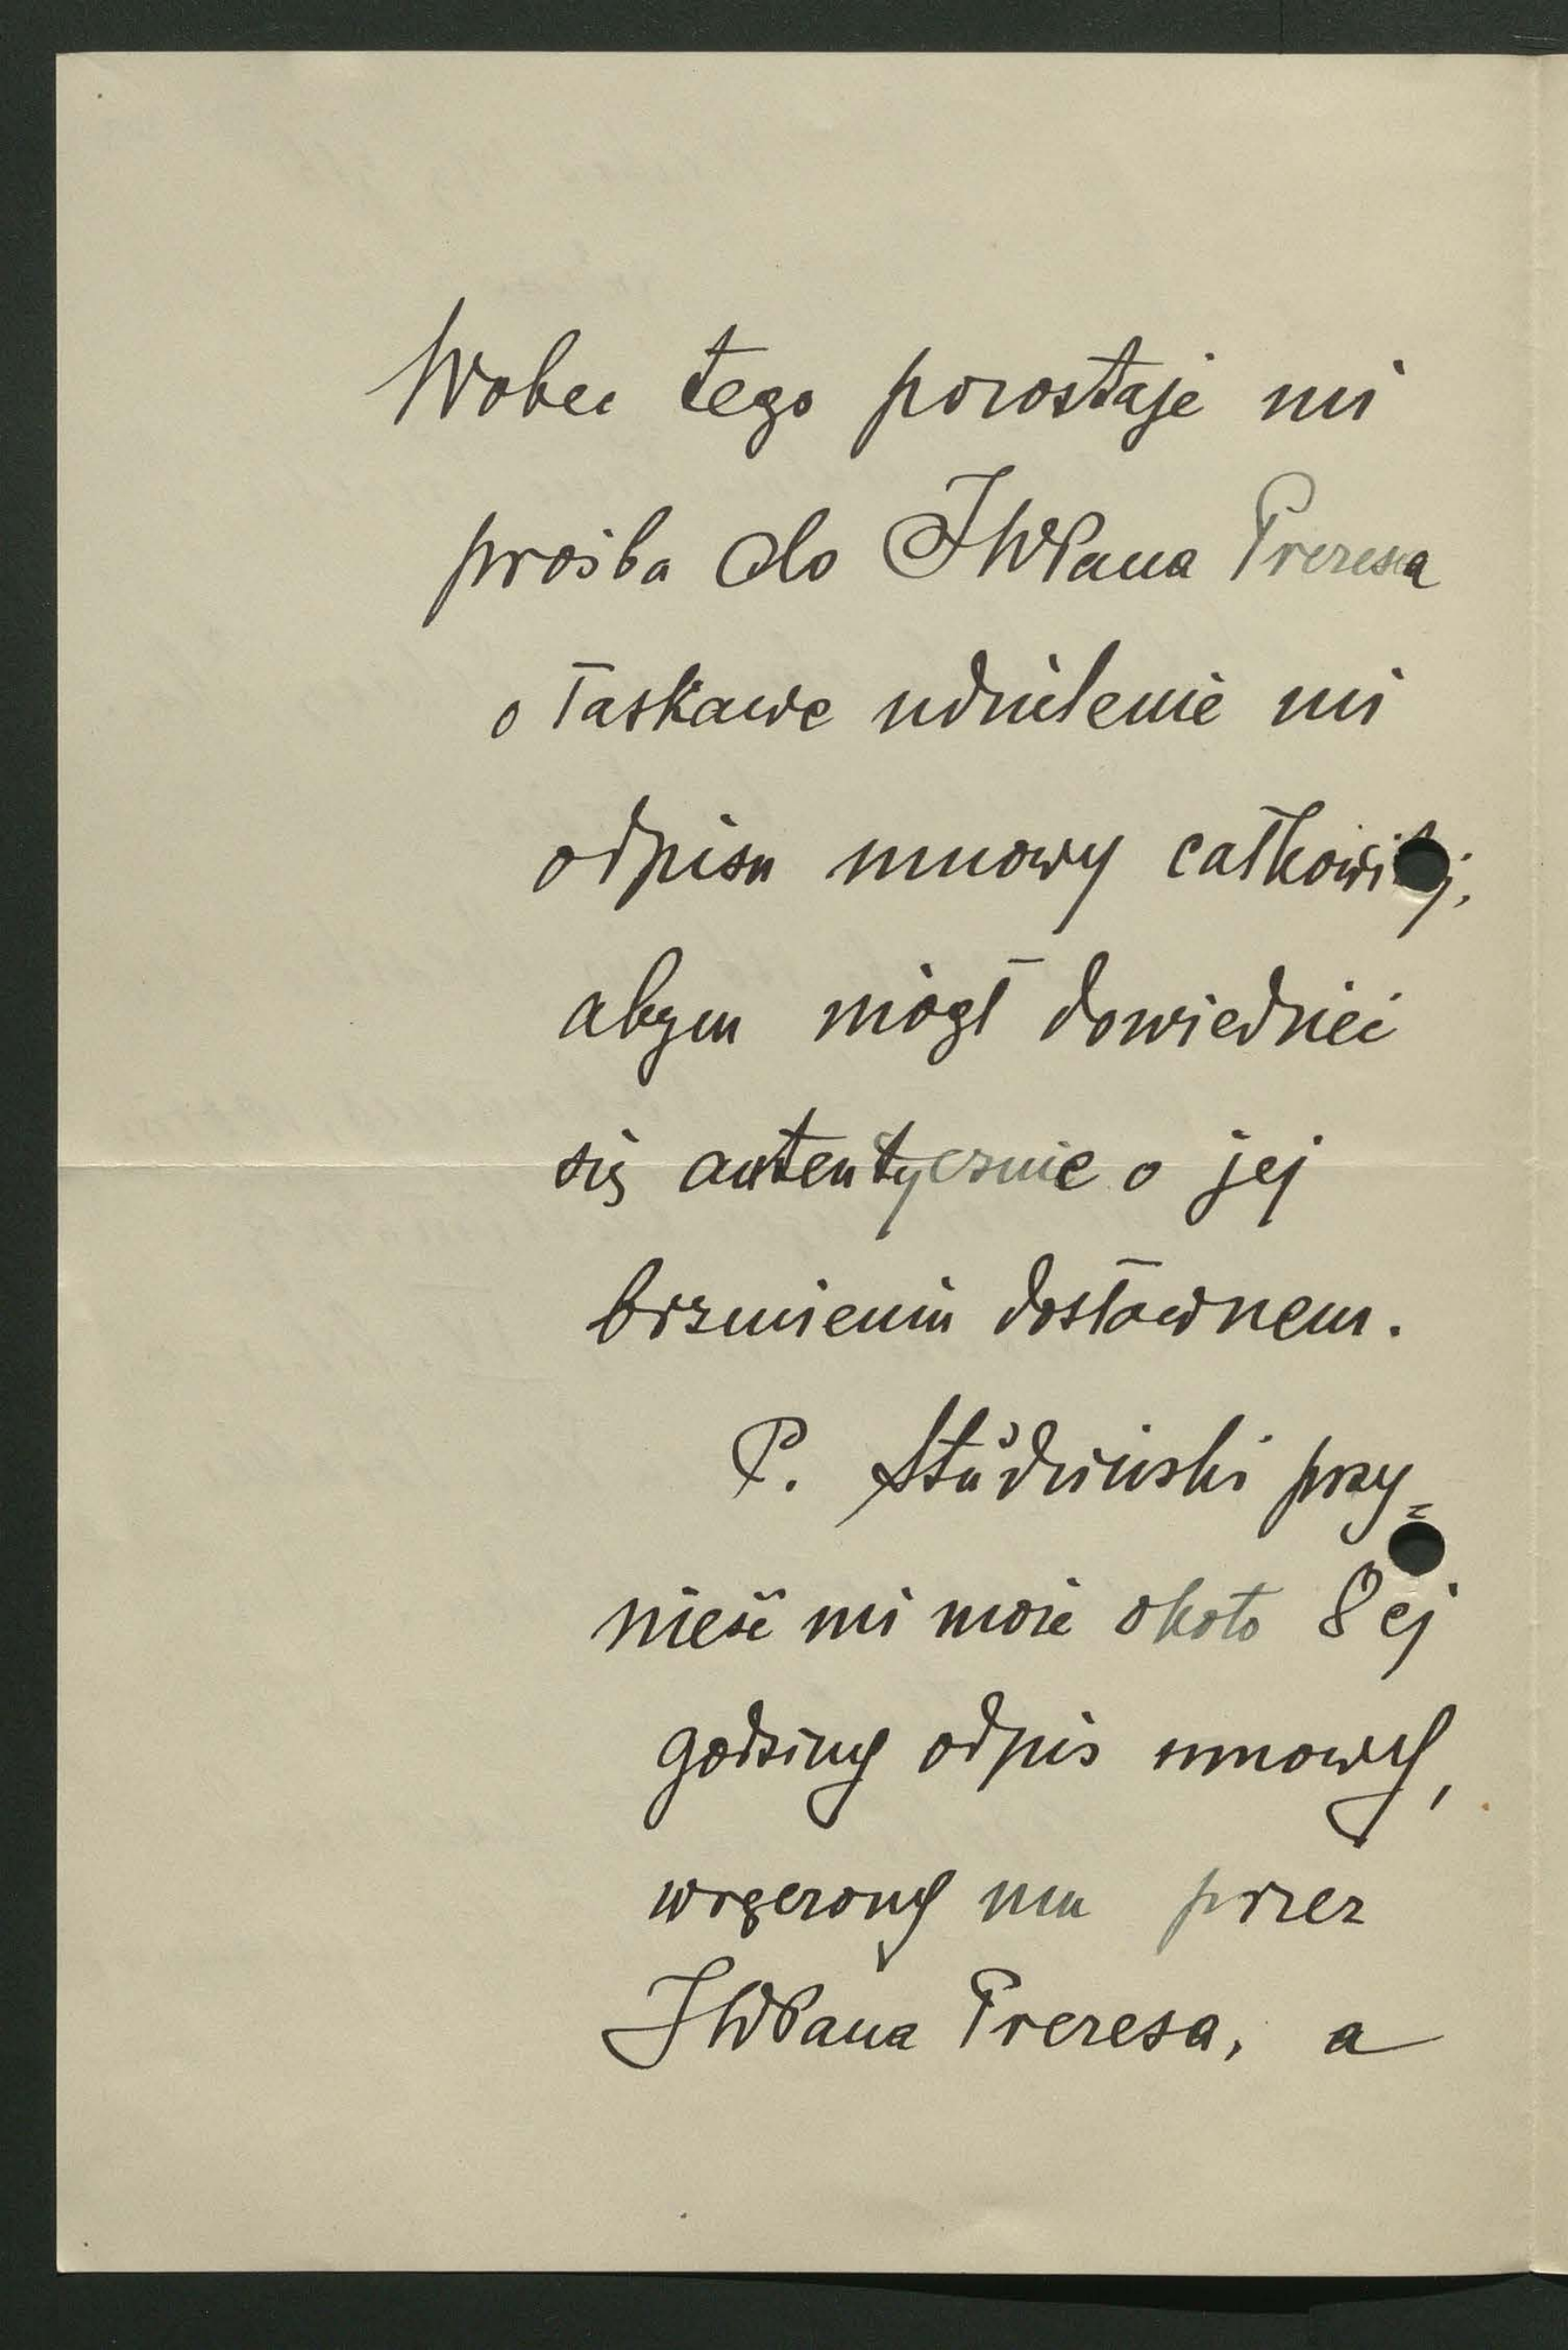 Wobec tego pozostaje mi
prośba do JWPana Prezesa
o łaskawe udzielenie mi
odpisu umowy całkowitej,
abym mógł dowiedzieć
się autentycznie o jej
brzmieniu dosłownem.
P. Stúdziński przy=
nieść mi może około 8ej
godziny odpis umowy,
wręczony mu przez
JWPana Prezesa, a